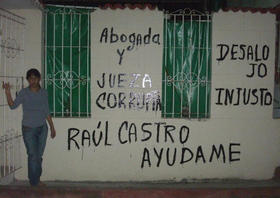 Abogada
y
JUEZA
CORRUPTA
DESALO
JO
INJUSTO
RAÚL CASTRO
AYUDAME